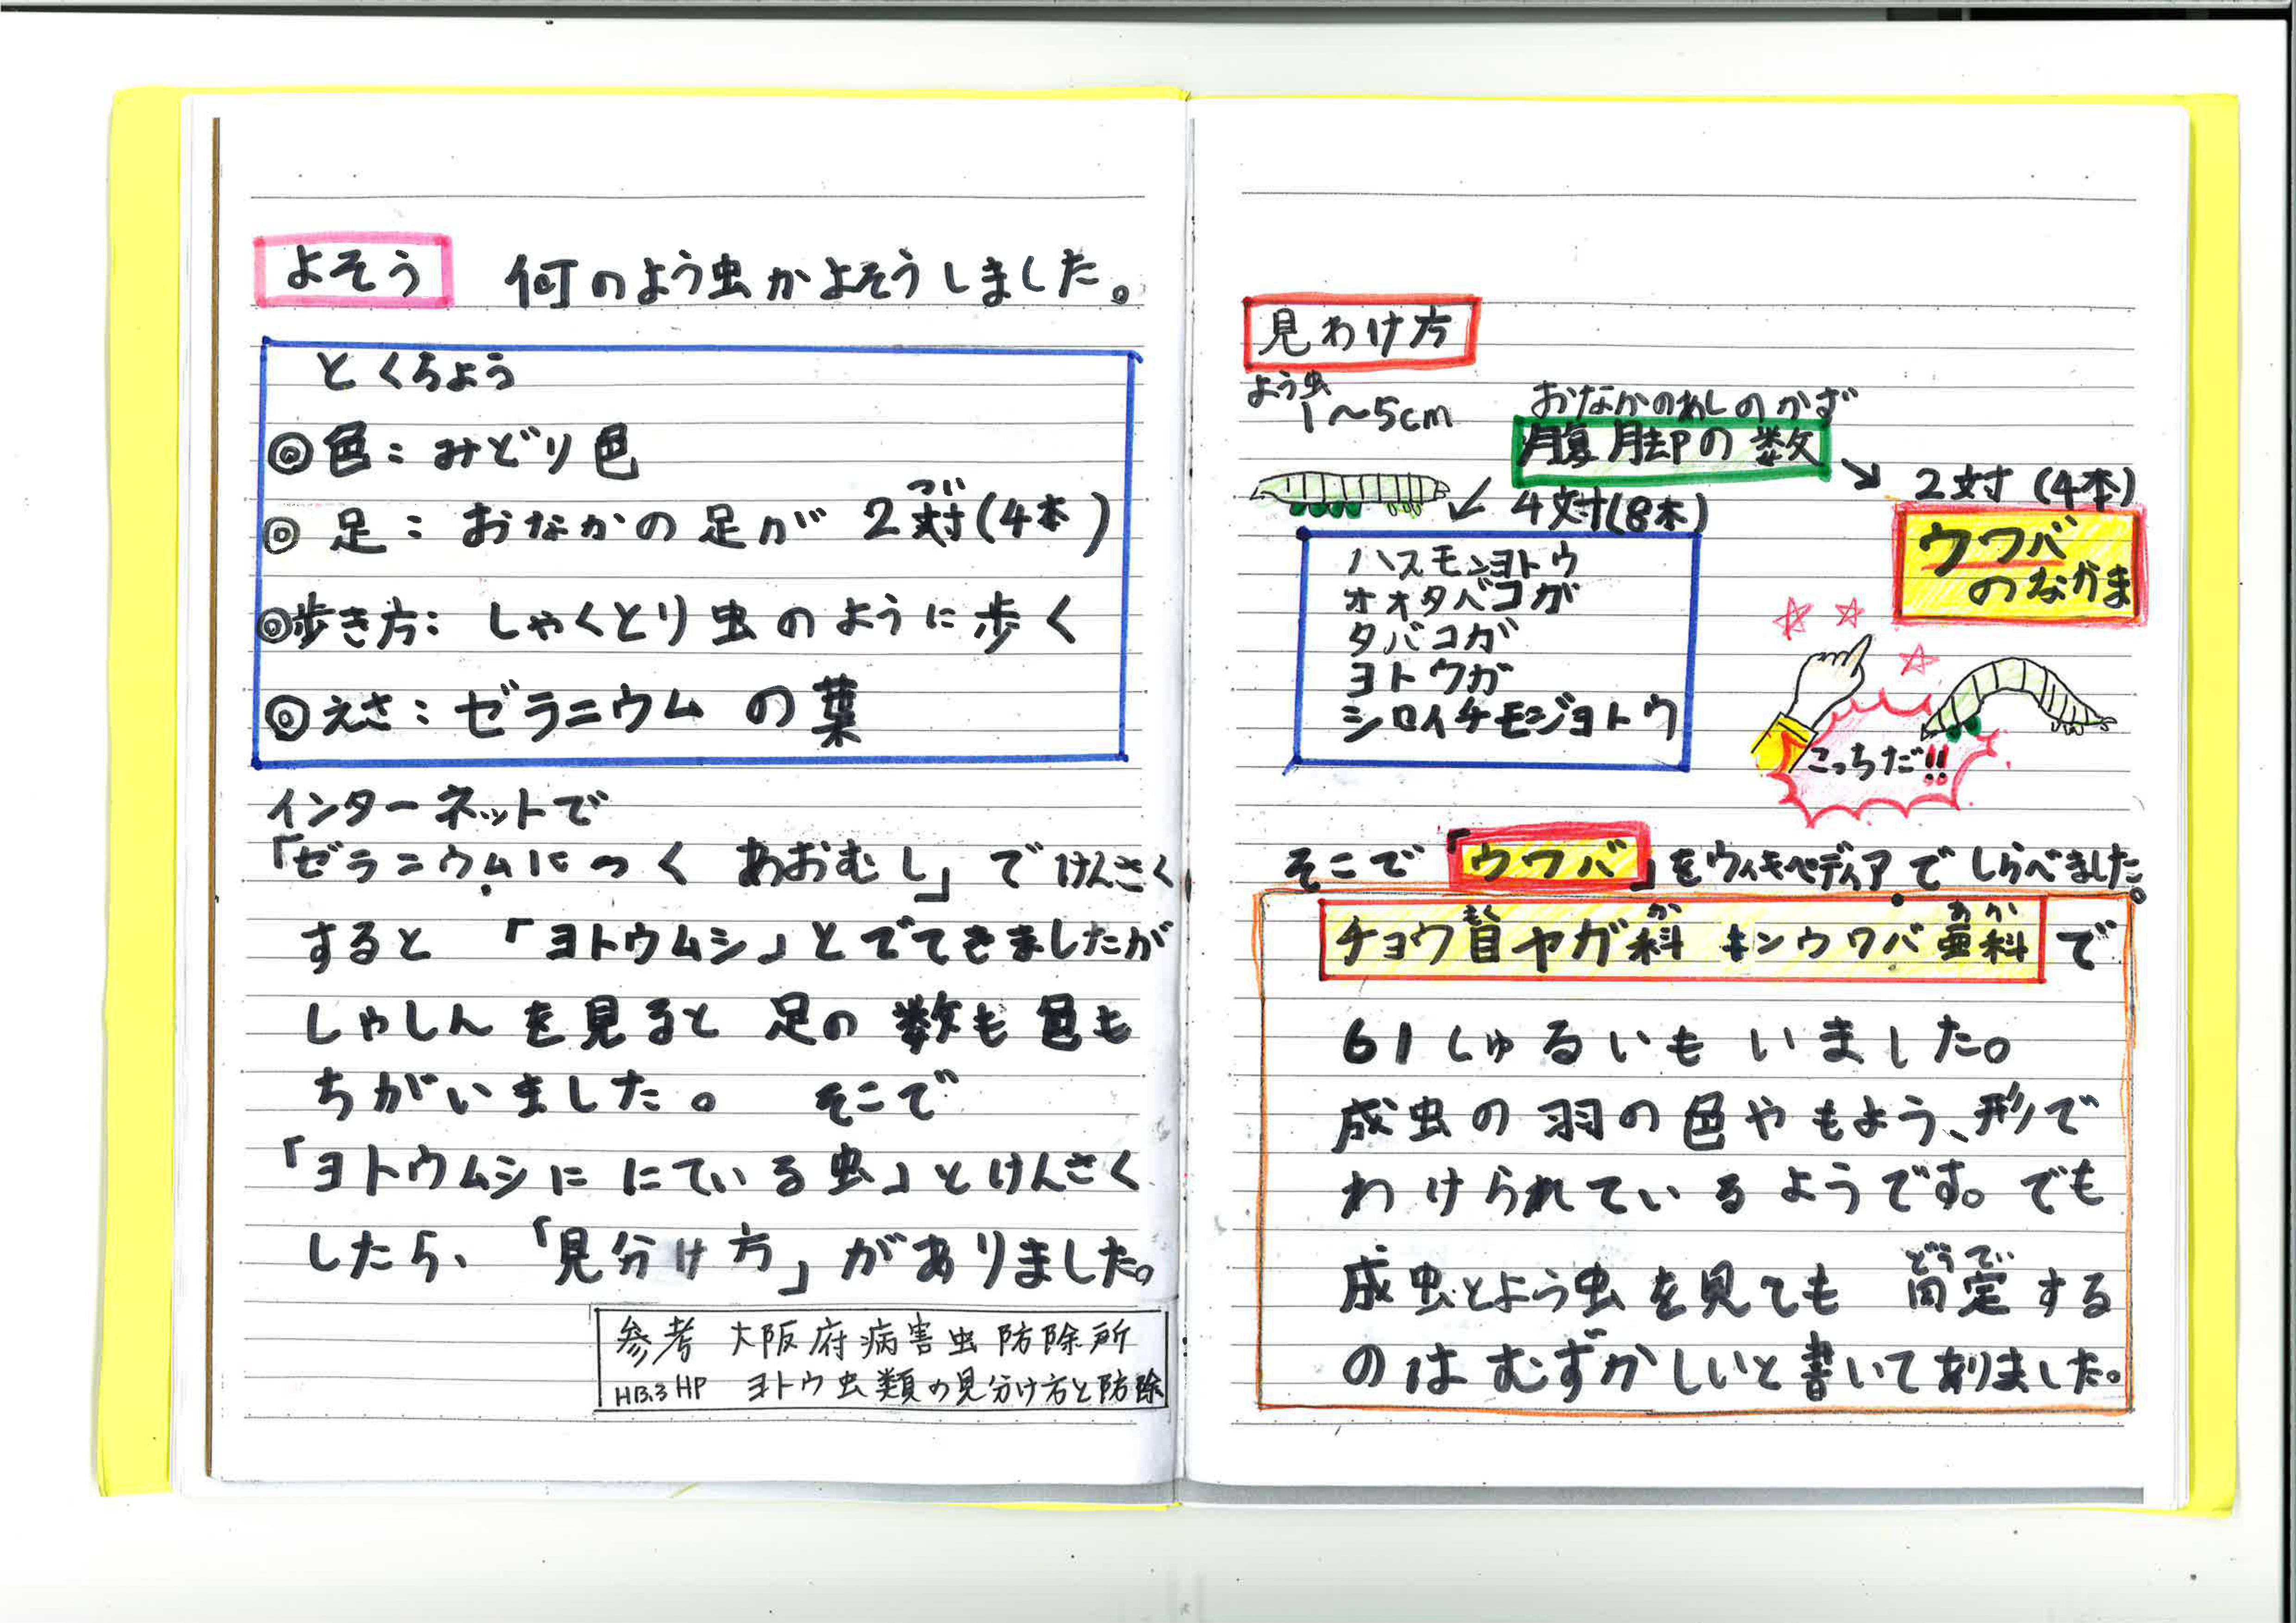 よそう 何のよう虫かよそうしました。
とくちょう
◎色：みどり色
つい
◎足：おなかの足が 2対(4本)
◎歩き方：しゃくとり虫のように歩く
◎えさ：ゼラニウムの葉
インターネットで
「ゼラニウムにつく あおむし」でけんさく
すると 「ヨトウムシ」とでてきましたが
しゃしんを見ると 足の数も色も
ちがいました。 そこで
「ヨトウムシに にている虫」とけんさく
したら、「見分け方」がありました。
参考 大阪府病害虫防除所
HP ヨトウ虫類の見分け方と防除
見わけ方
よう虫
1～5cm
おなかのあしのかず
腹脚の数
4対(8本)
ハスモンヨトウ
オオタバコガ
タバコガ
ヨトウガ
シロイチモジヨトウ
2対(4本)
ウワバ
のなかま
こっちだ!!
そこで「ウワバ」をウィキペディアでしらべました。
もく か あか
チョウ目ヤガ科 キンウワバ亜科で
61しゅるいもいました。
成虫の羽の色やもよう、形で
わけられているようです。でも
成虫とよう虫を見ても 同定する
のはむずかしいと書いてありました。